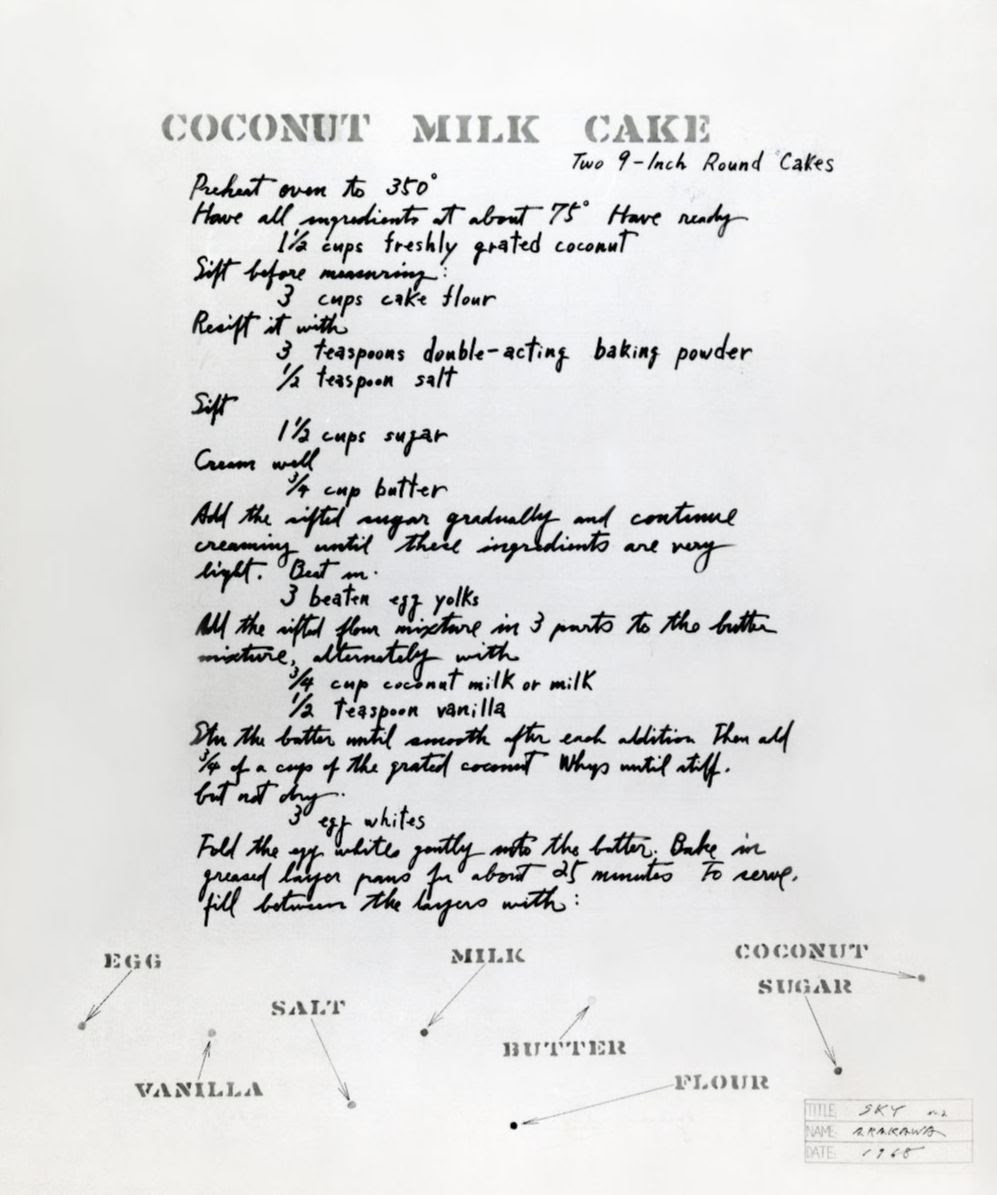 COCONUT MILK CAKE
Two 9-Inch Round Cakes
Preheat oven to 350°
Have all ingredients at about 75° Have ready
1½ cups freshly grated coconut
Sift before measuring:
3 cups cake flour
Resift it with
3 teaspoons double-acting baking powder
½ teaspoon salt
Sift
1½ cups sugar
Cream well
¾ cup butter
Add the sifted sugar gradually and continue
creaming until these ingredients are very
light. Beat in.
3 beaten egg yolks
Add the sifted flour mixture in 3 parts to the butter
mixture, alternately with
¾ cup coconut milk or milk
½ teaspoon vanilla
Stir the batter until smooth after each addition Then add
¾ of a cup of the grated coconut Whip until stiff.
but not dry.
3 egg whites
Fold the egg whites gently into the batter. Bake in
greased layer pans for about 25 minutes To serve.
fill between the layers with:
EGG
MILK
COCONUT
SUGAR
SALT
BUTTER
VANILLA
FLOUR
TITLE: SKY
NAME: ARAKAWA
DATE: 1968